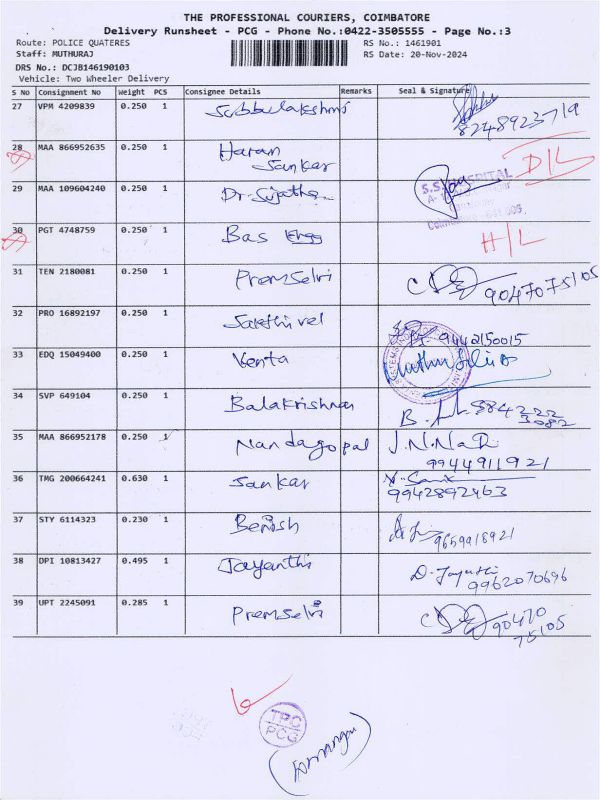 THE PROFESSIONAL COURIERS, COIMBATORE
Delivery Runsheet - PCG - Phone No.:0422-3505555 - Page No.:3
Route: POLICE QUATERES RS No.: 1461901
Staff: MUTHURAJ RS Date: 20-Nov-2024
DRS No.: DCJB146190103
Vehicle: Two Wheeler Delivery
S No Consignment No Weight PCS Consignee Details Remarks Seal & Signature
27 VPM 4209839 0.250 1 Subbulakshmi 8248923719
28 MAA 866952635 0.250 1 Haran Sankar D/L
29 MAA 109604240 0.250 1 Dr. Sujatha
30 PGT 4748759 0.250 1 Bas H/L
31 TEN 2180081 0.250 1 Premselvi 9047075105
32 PRO 16892197 0.250 1 Sakthivel 9442150015
33 EDQ 15049400 0.250 1 Venta
34 SVP 649104 0.250 1 Balakrishnan B. 884222 3082
35 MAA 866952178 0.250 1 Nandagopal J.N.NaR 9944911921
36 TMG 200664241 0.630 1 Sankar 9942892463
37 STY 6114323 0.230 1 Benish 9659918921
38 DPI 10813427 0.495 1 Jayanthi D. Jayanthi 9962070696
39 UPT 2245091 0.285 1 Premselvi 90470 75105
TPC
PCG